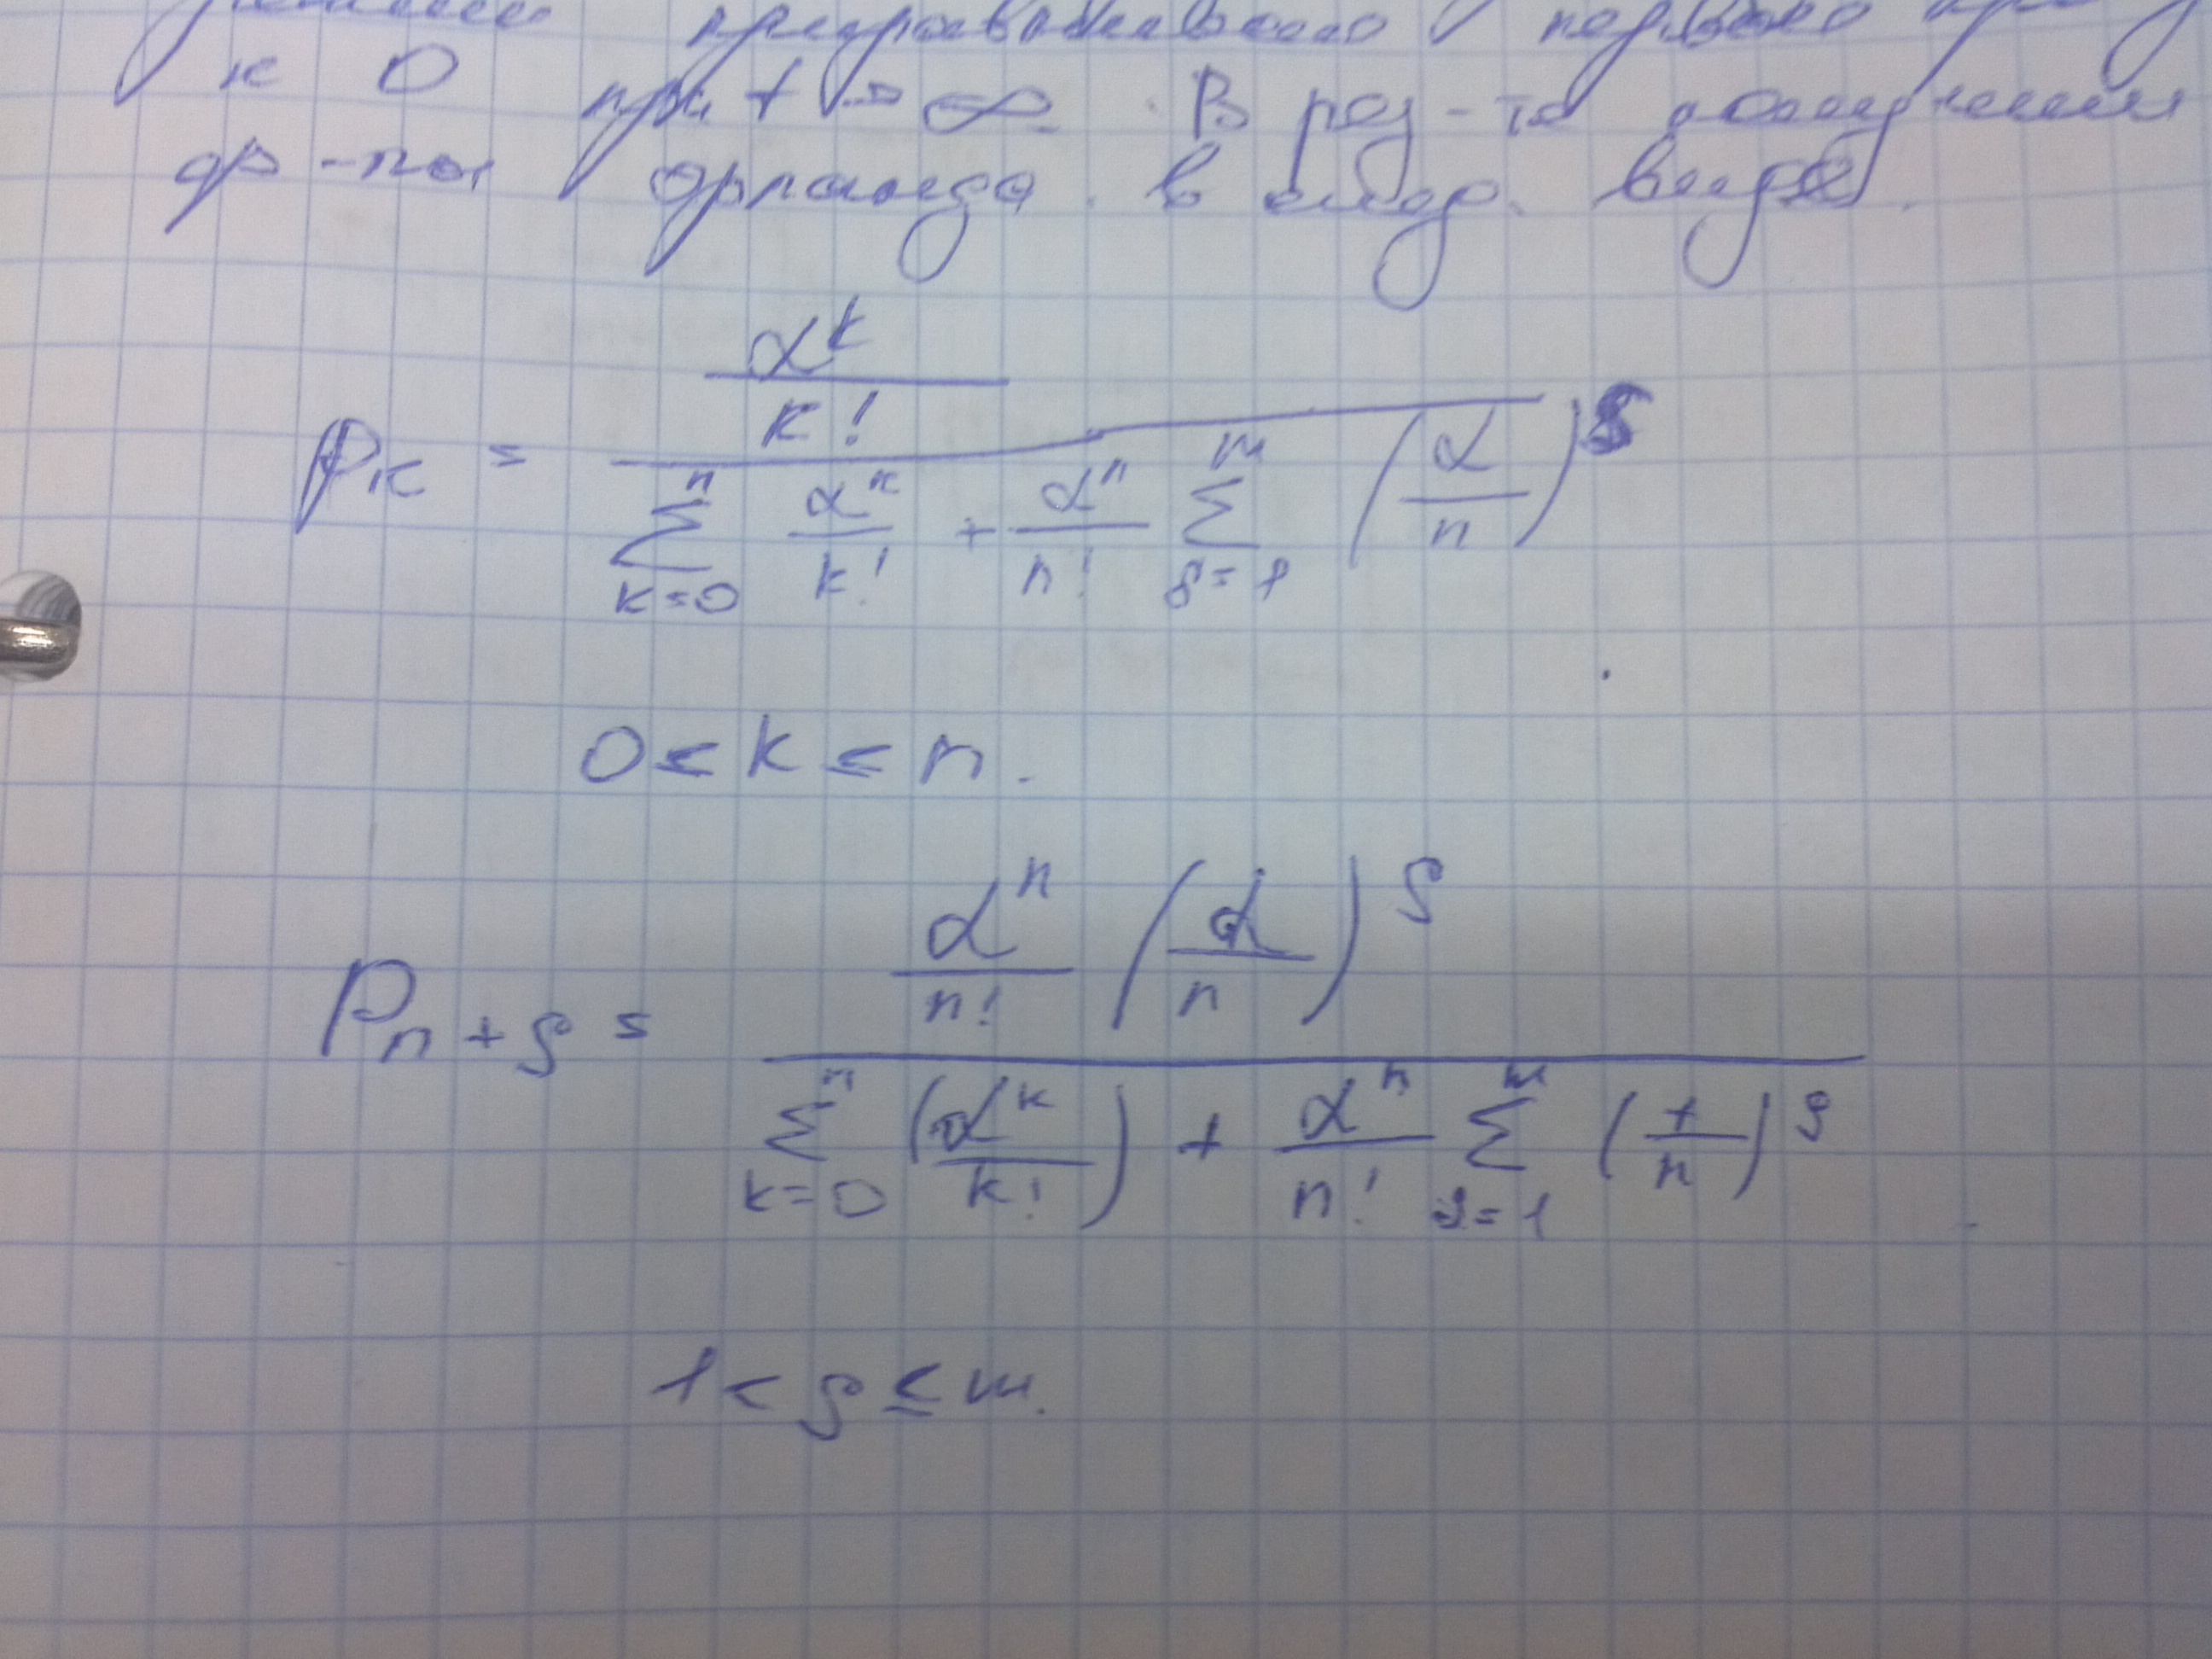 приравниваем первую
к 0 при t → ∞. В рез-те получения
ф-лы Эрланга в след. виде.
P_k = (α^k / k!) / (∑_{k=0}^{n} α^k / k! + α^n / n! ∑_{s=1}^{m} (α / n)^s)
0 ≤ k ≤ n.
P_{n+s} = (α^n / n! (α / n)^s) / (∑_{k=0}^{n} (α^k / k!) + α^n / n! ∑_{s=1}^{m} (t / n)^s)
1 < s ≤ m.